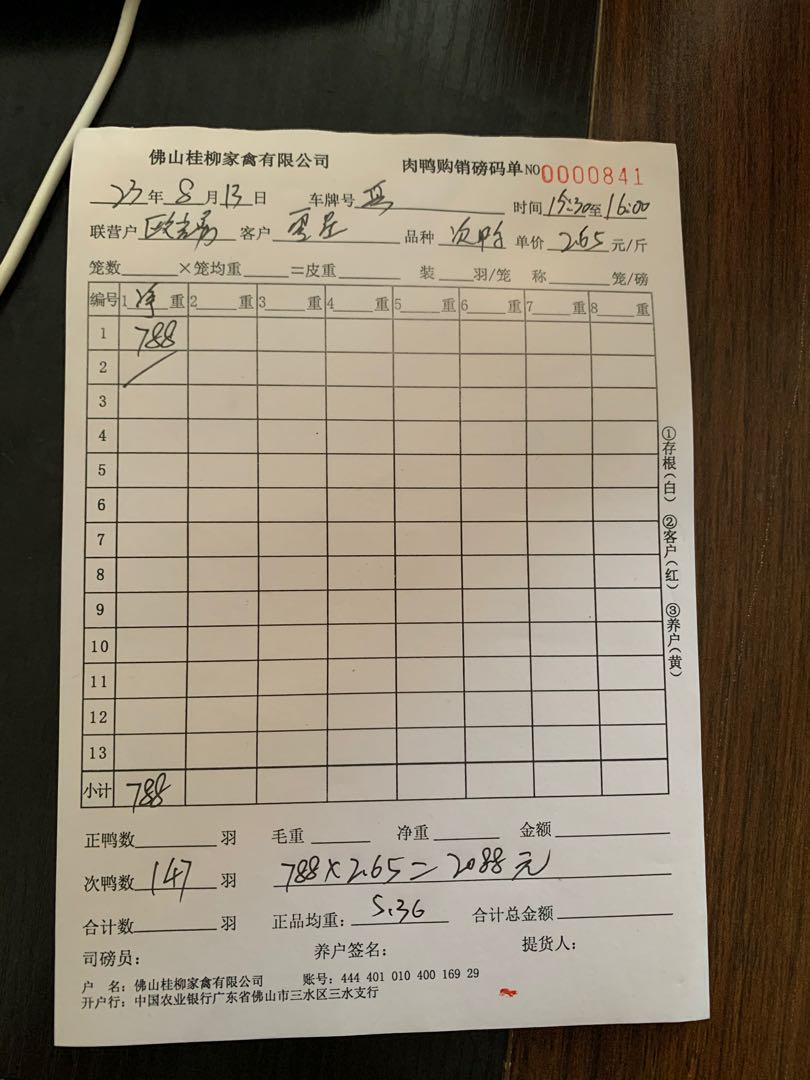 佛山桂柳家禽有限公司 肉鸭购销磅码单 NO 0000841
23年8月13日 车牌号 时间 15:30至16:00
联营户 客户 品种 次鸭 单价 2.65 元/斤
笼数 ×笼均重 =皮重 装 羽/笼 称 笼/磅
编号 1 净 重 2 重 3 重 4 重 5 重 6 重 7 重 8 重
1 788
2
3
4
5
6
7
8
9
10
11
12
13
小计 788
正鸭数 羽 毛重 净重 金额
次鸭数 147 羽 788×2.65=2088元
合计数 羽 正品均重: 5.36 合计总金额
司磅员: 养户签名: 提货人:
户 名: 佛山桂柳家禽有限公司 账号: 444 401 010 400 169 29
开户行: 中国农业银行广东省佛山市三水区三水支行
①存根(白) ②客户(红) ③养户(黄)